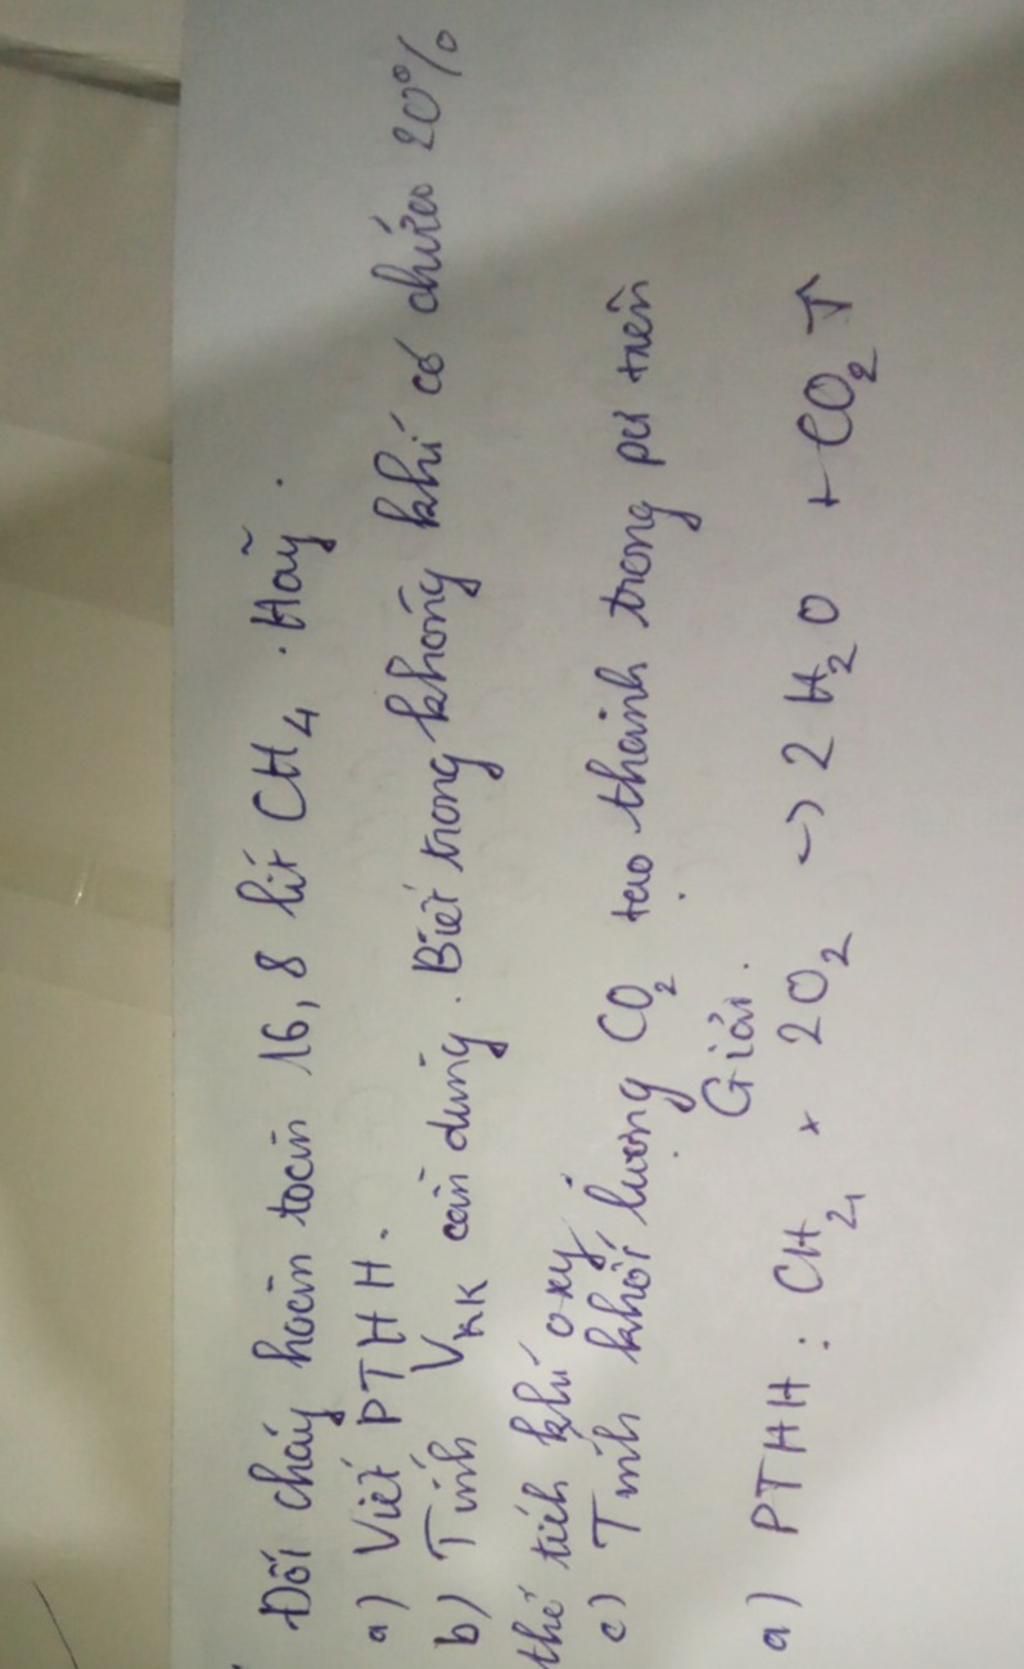 Đốt cháy hoàn toàn 16,8 lít CH4. Hãy.
a) Viết PTHH.
b) Tính VKK cần dùng. Biết trong không khí có chứa 20%
thể tích khí oxy.
c) Tính khối lượng CO2 tạo thành trong pư trên
Giải.
a) PTHH: CH4 + 2O2 → 2H2O + CO2↑